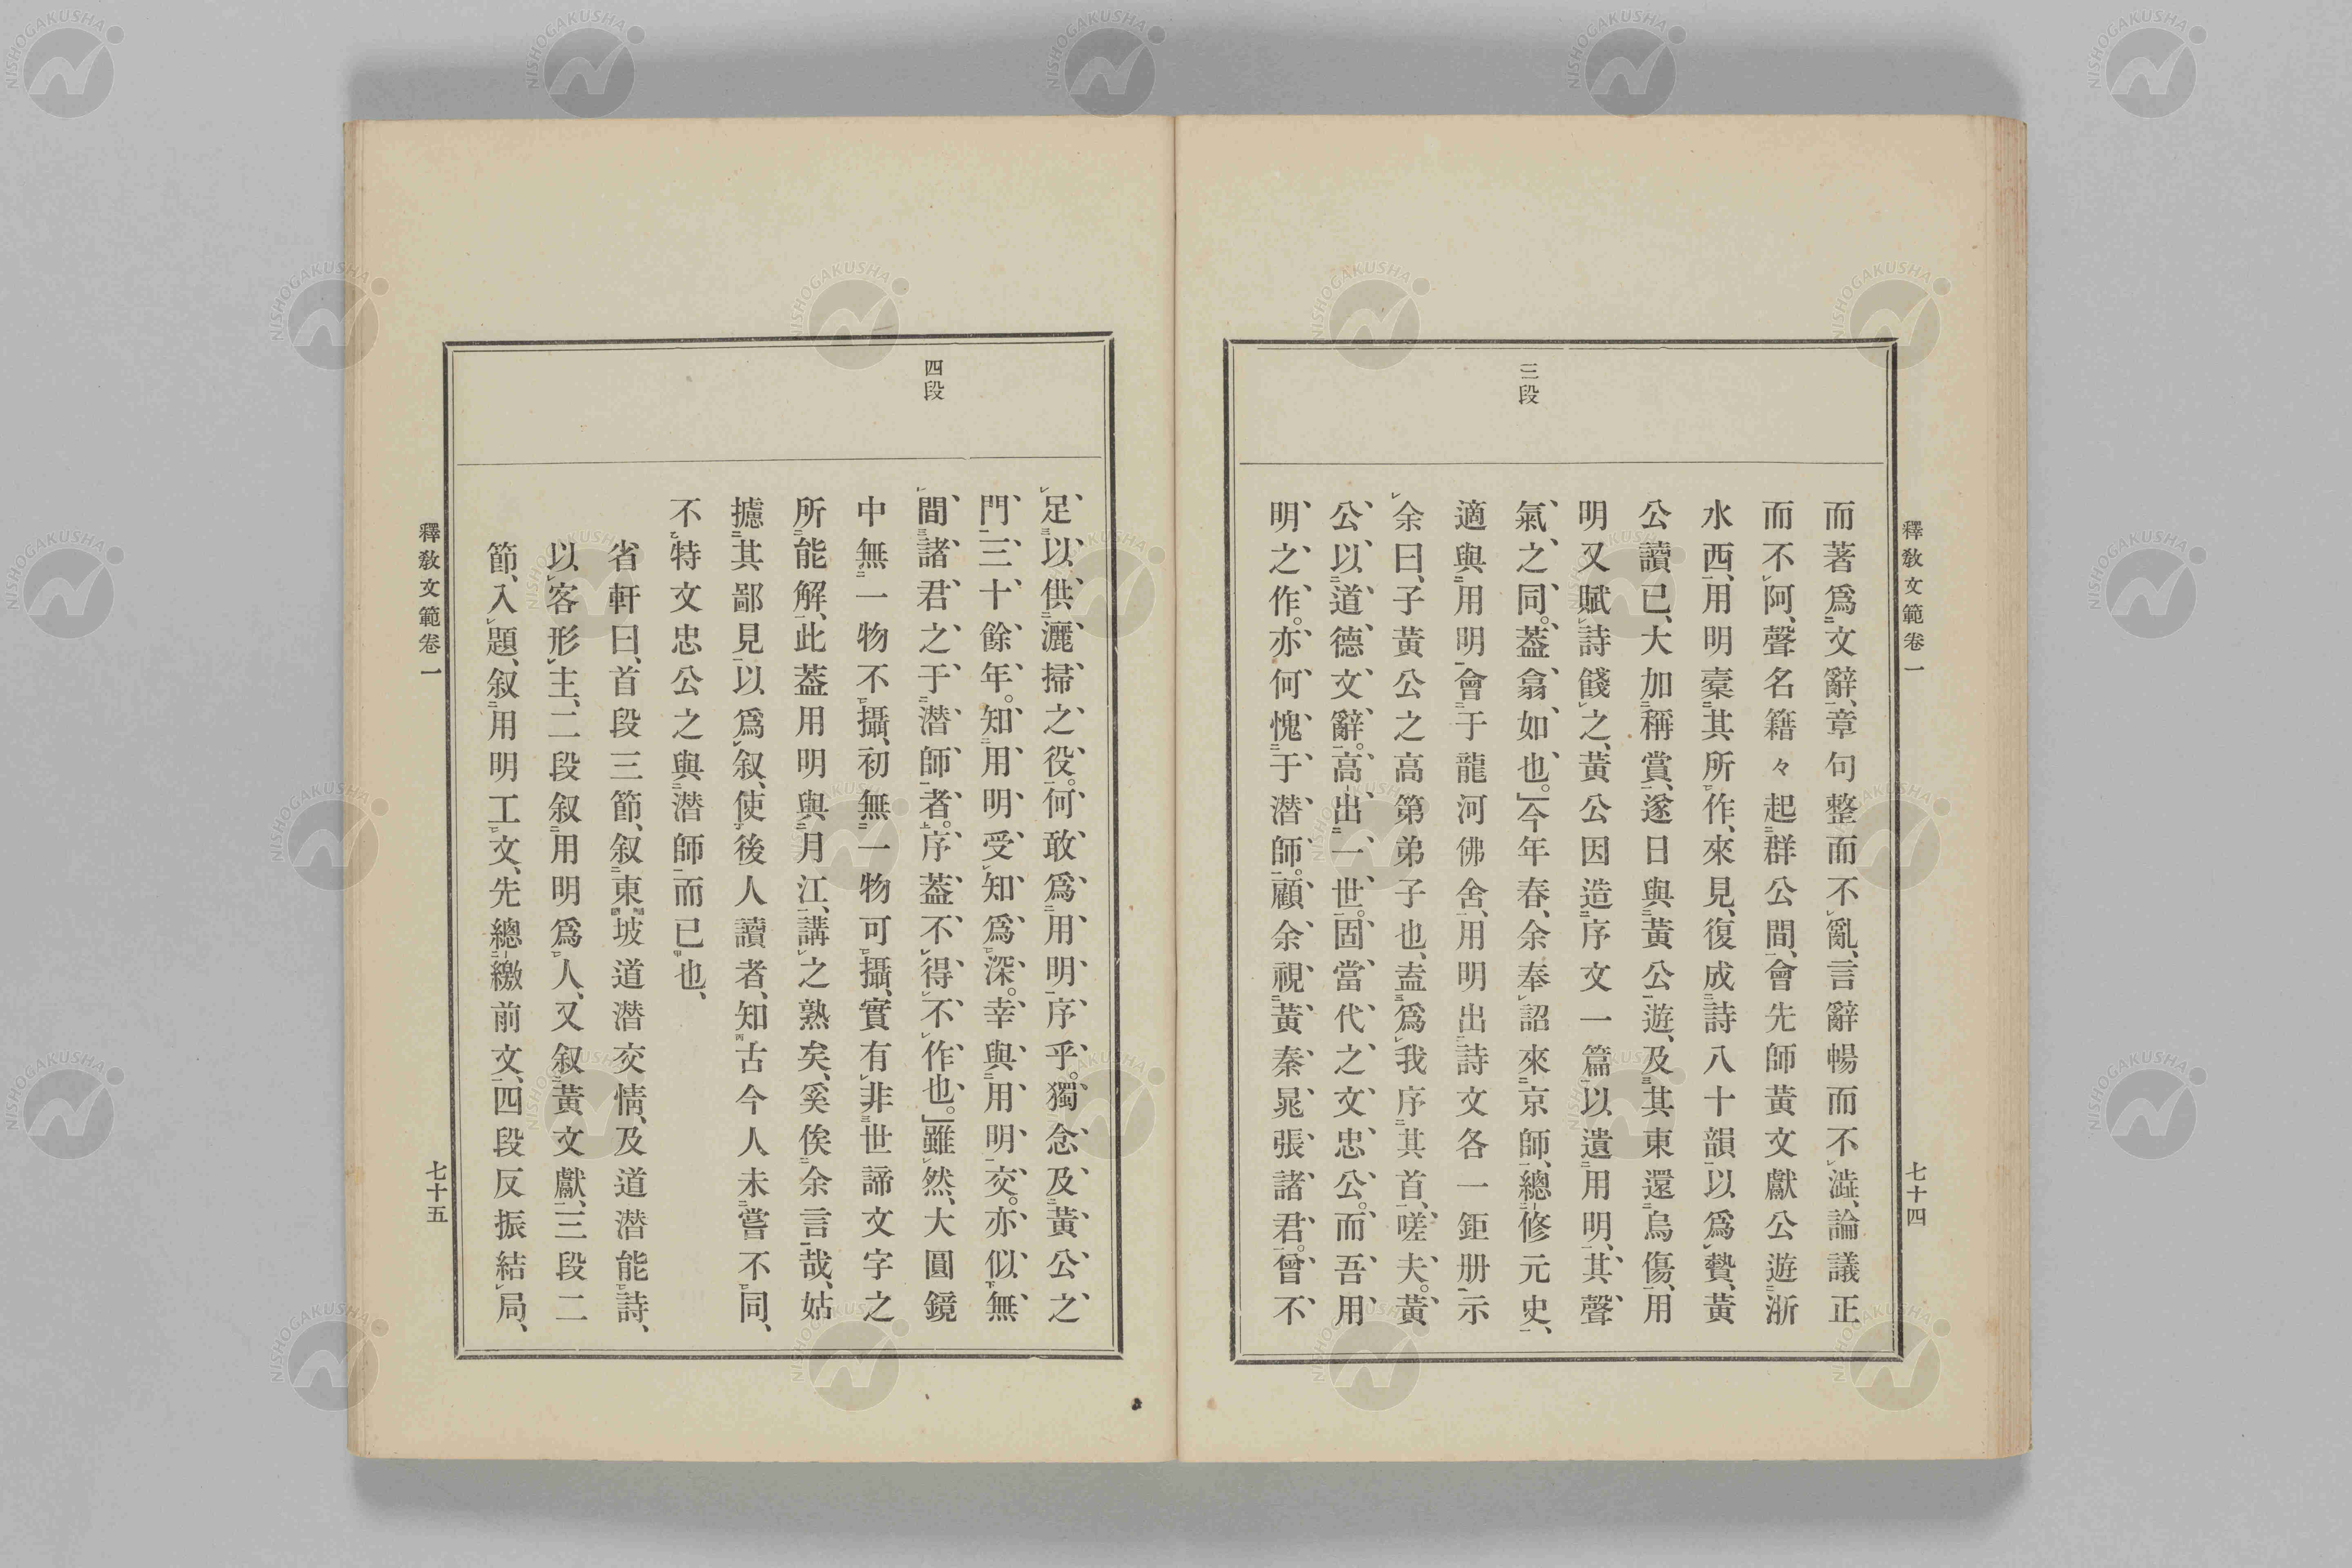 釋教文範卷一
七十四
三段
而著爲文辭、章句整而不亂、言辭暢而不澁、論議正
而不阿、聲名籍々起群公間、會先師黃文獻公遊浙
水西、用明藁其所作、來見、復成詩八十韻、以爲贄、黃
公讀已、大加稱賞、遂日與黃公遊、及其東還烏傷、用
明又賦詩餞之、黃公因造序文一篇、以遺用明、其聲
氣之同。蓋翕如也。」今年春、余奉詔來京師、總修元史、
適與用明會于龍河佛舍、用明出詩文各一鉅册、示
余曰、子黃公之高第弟子也、盍爲我序其首、嗟夫。黃
公以道德文辭。高出一世。固當代之文忠公。而吾用
明之作。亦何愧于潜師。顧余視黃秦晁張諸君。曾不
四段
足以供灑掃之役。何敢爲用明序乎。獨念及黃公之
門三十餘年。知用明受知爲深。幸與用明交。亦似無
間諸君之于潜師者。序蓋不得不作也。」雖然、大圓鏡
中無一物不攝、初無一物可攝、實有非世諦文字之
所能解、此蓋用明與月江、講之熟矣、奚俟余言哉、姑
攄其鄙見、以爲叙、使後人讀者、知古今人未嘗不同、
不特文忠公之與潜師而已也、
省軒曰、首段三節、叙東坡道潜交情、及道潜能詩、
以客形主、二段叙用明爲人、又叙黃文獻、三段二
節、入題、叙用明工文、先總繳前文、四段反振結局、
釋教文範卷一
七十五
NISHOGAKUSHA